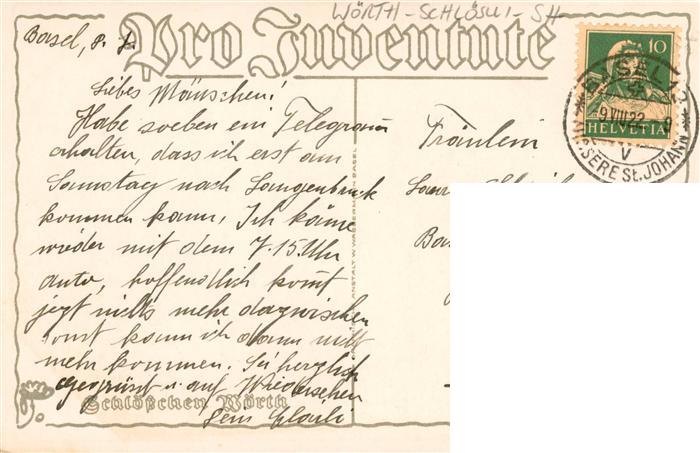 WÖRTH-SCHLÖSLI-SH
Pro Juventute
Basel,
Liebes Mäuschen!
Habe soeben ein Telegramm
erhalten, dass ich erst am
Samstag nach Langenbruck
kommen kann. Ich käme
wieder mit dem 7.15 Uhr
auto, hoffendlich komt
jezt nichts mehr dazwischen
sonst kann ich dann nicht
mehr kommen. Sei herzlich
gegrüsst u. auf Wiedersehen
Schlößchen Wörth
Dein
Fräulein
Ba
10
HELVETIA
BASEL 13
9.VIII.22
V
ÄUSSERE St.JOHANN
WASSERMANN BASEL